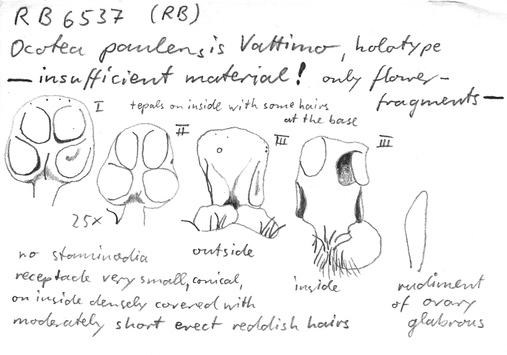 RB 6537 (RB)
Ocotea paulensis Vattimo, holotype
— insufficient material! only flower-
fragments —
I
tepals on inside with some hairs
at the base
II
III
III
25x
outside
inside
no staminodia
receptacle very small, conical,
on inside densely covered with
moderately short erect reddish hairs
rudiment
of ovary
glabrous